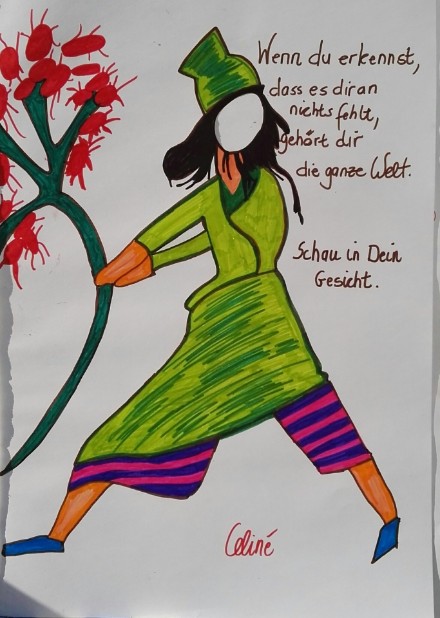 Wenn du erkennst,
dass es dir an
nichts fehlt,
gehört dir
die ganze Welt.
Schau in Dein
Gesicht.
Celiné